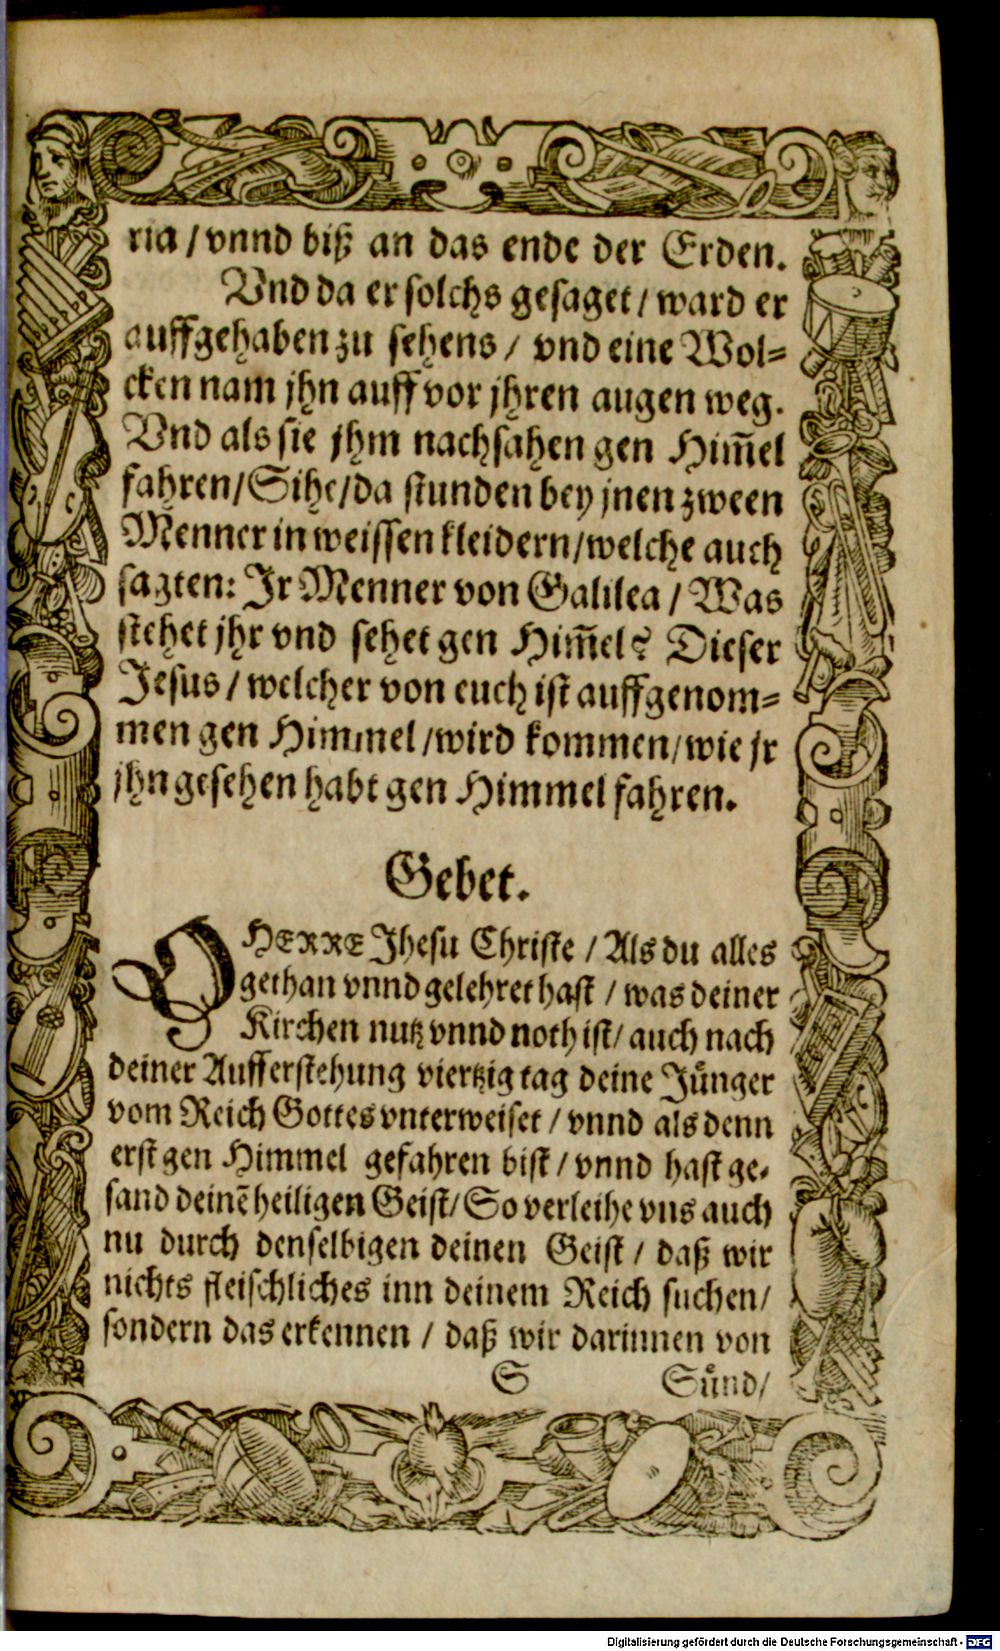 ria / vnnd biß an das ende der Erden.
Vnd da er solchs gesaget / ward er
auffgehaben zu sehens / vnd eine Wol-
cken nam jhn auff vor jhren augen weg.
Vnd als sie jhm nachsahen gen Him̃el
fahren/Sihe/da stunden bey jnen zween
Menner in weissen kleidern/welche auch
sagten: Jr Menner von Galilea / Was
stehet jhr vnd sehet gen Him̃el? Dieser
Jesus / welcher von euch ist auffgenom-
men gen Himmel /wird kommen/wie jr
jhn gesehen habt gen Himmel fahren.
Gebet.
O HERRE Jhesu Christe / Als du alles
gethan vnnd gelehret hast / was deiner
Kirchen nutz vnnd noth ist/ auch nach
deiner Aufferstehung viertzig tag deine Jůnger
vom Reich Gottes vnterweiset / vnnd als denn
erst gen Himmel gefahren bist / vnnd hast ge-
sand deinē heiligen Geist/ So verleihe vns auch
nu durch denselbigen deinen Geist / daß wir
nichts fleischliches inn deinem Reich suchen/
sondern das erkennen / daß wir darinnen von
S Sůnd/
Digitalisierung gefördert durch die Deutsche Forschungsgemeinschaft - DFG